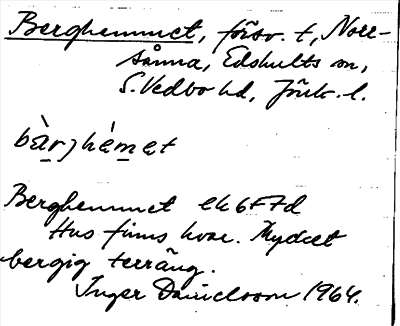 Berghemmet, försv. t, Norr-
sånna, Edshults sn,
S. Vedbo hd, Jönk. l.
bàrjhémet
Berghemmet ek 6F7d
Hus finns kvar. Mycket
bergig terräng.
Inger Danielsson 1964.